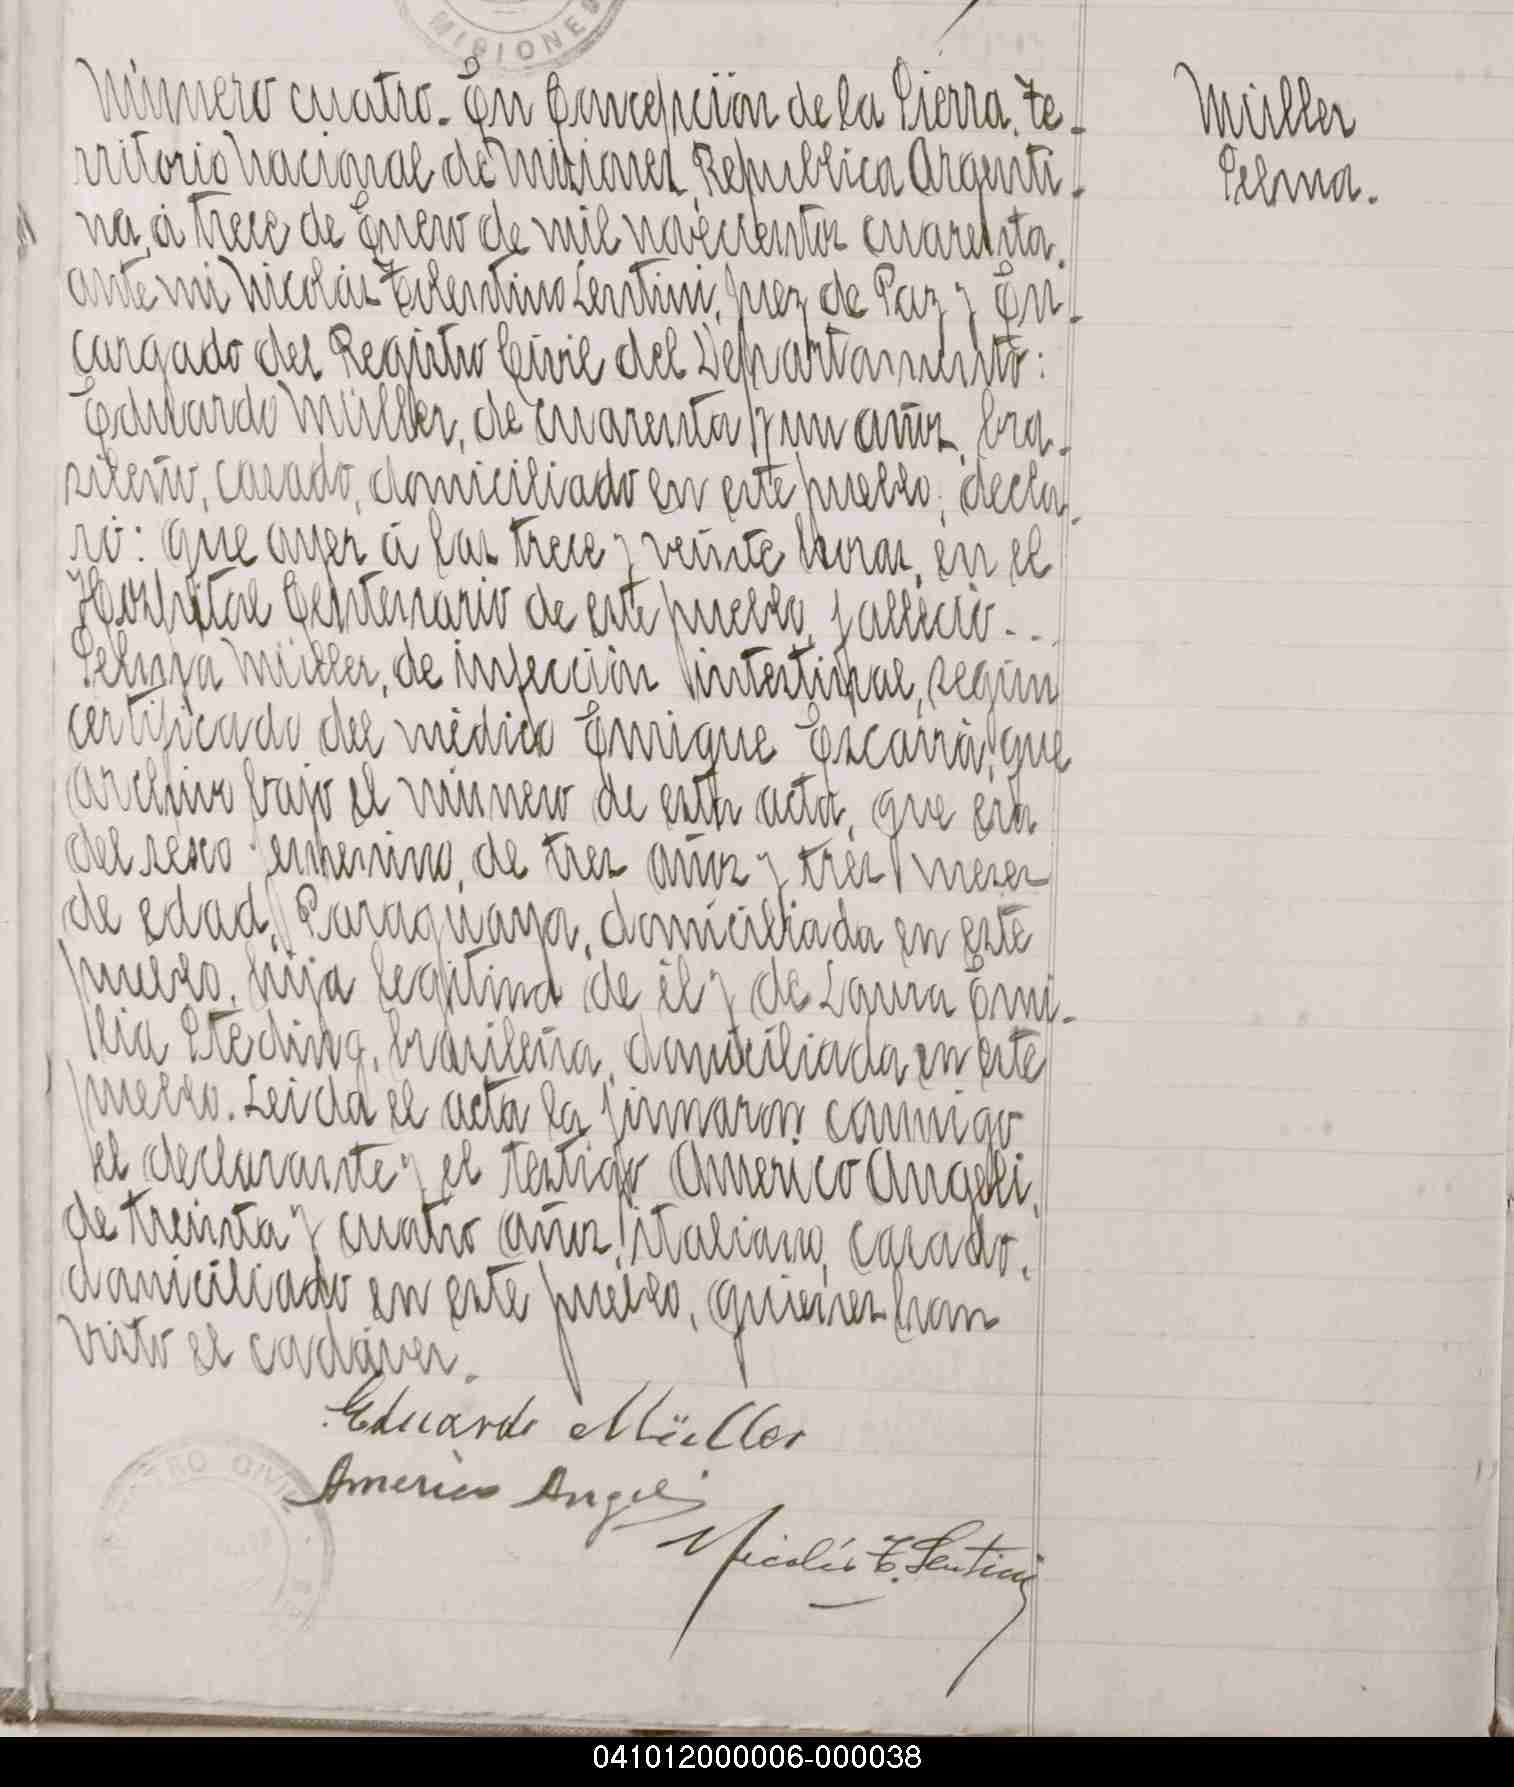 MISIONES
Número cuatro. En Concepción de la Sierra, Te-
rritorio Nacional de Misiones, República Argenti-
na, á trece de Enero de mil novecientos cuarenta,
ante mi Nicolás Tolentino Lentini, Juez de Paz y En-
cargado del Registro Civil del Departamento:
Eduardo Müller, de cuarenta y un años, bra-
sileño, casado, domiciliado en este pueblo, decla-
ró: que ayer á las trece y veinte horas, en el
Hospital Centenario de este pueblo, falleció - -
Selma Müller, de infección intestinal, según
certificado del médico Enrique Escairá, que
archivo bajo el número de esta acta, que era
del sexo femenino, de tres años y tres meses
de edad, Paraguaya, domiciliada en este
pueblo, hija legítima de él y de Laura Emi-
lia Steding, brasileña, domiciliada en este
pueblo. Leida el acta la firmaron conmigo
el declarante y el testigo Americo Angeli,
de treinta y cuatro años, italiano, casado,
domiciliado en este pueblo, quienes han
visto el cadáver.
Eduardo Müller
Americo Angeli
Nicolás T. Lentini
REGISTRO CIVIL
Müller
Selma.
041012000006-000038